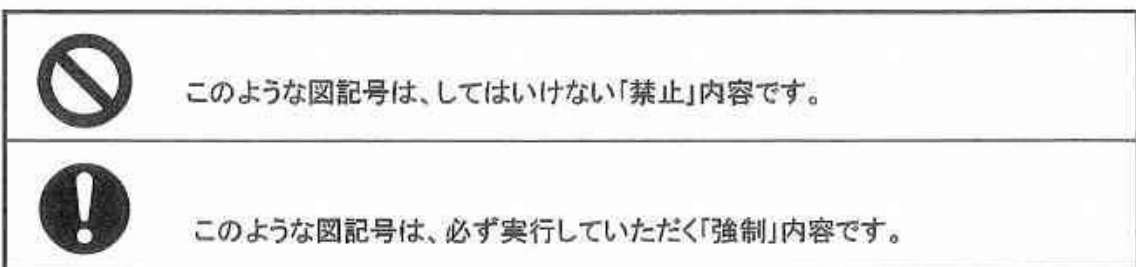 このような図記号は、してはいけない「禁止」内容です。
このような図記号は、必ず実行していただく「強制」内容です。